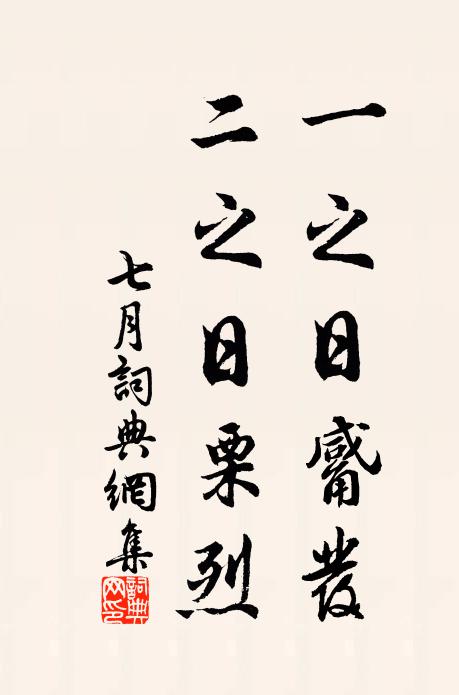 一之日觱發
二之日栗烈
七月詞典網集
詞典网印